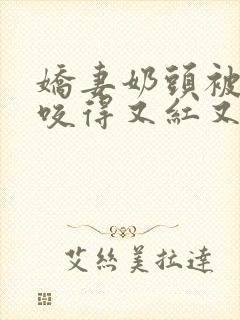 嬌妻奶頭被
咬得又紅又
艾絲美拉達